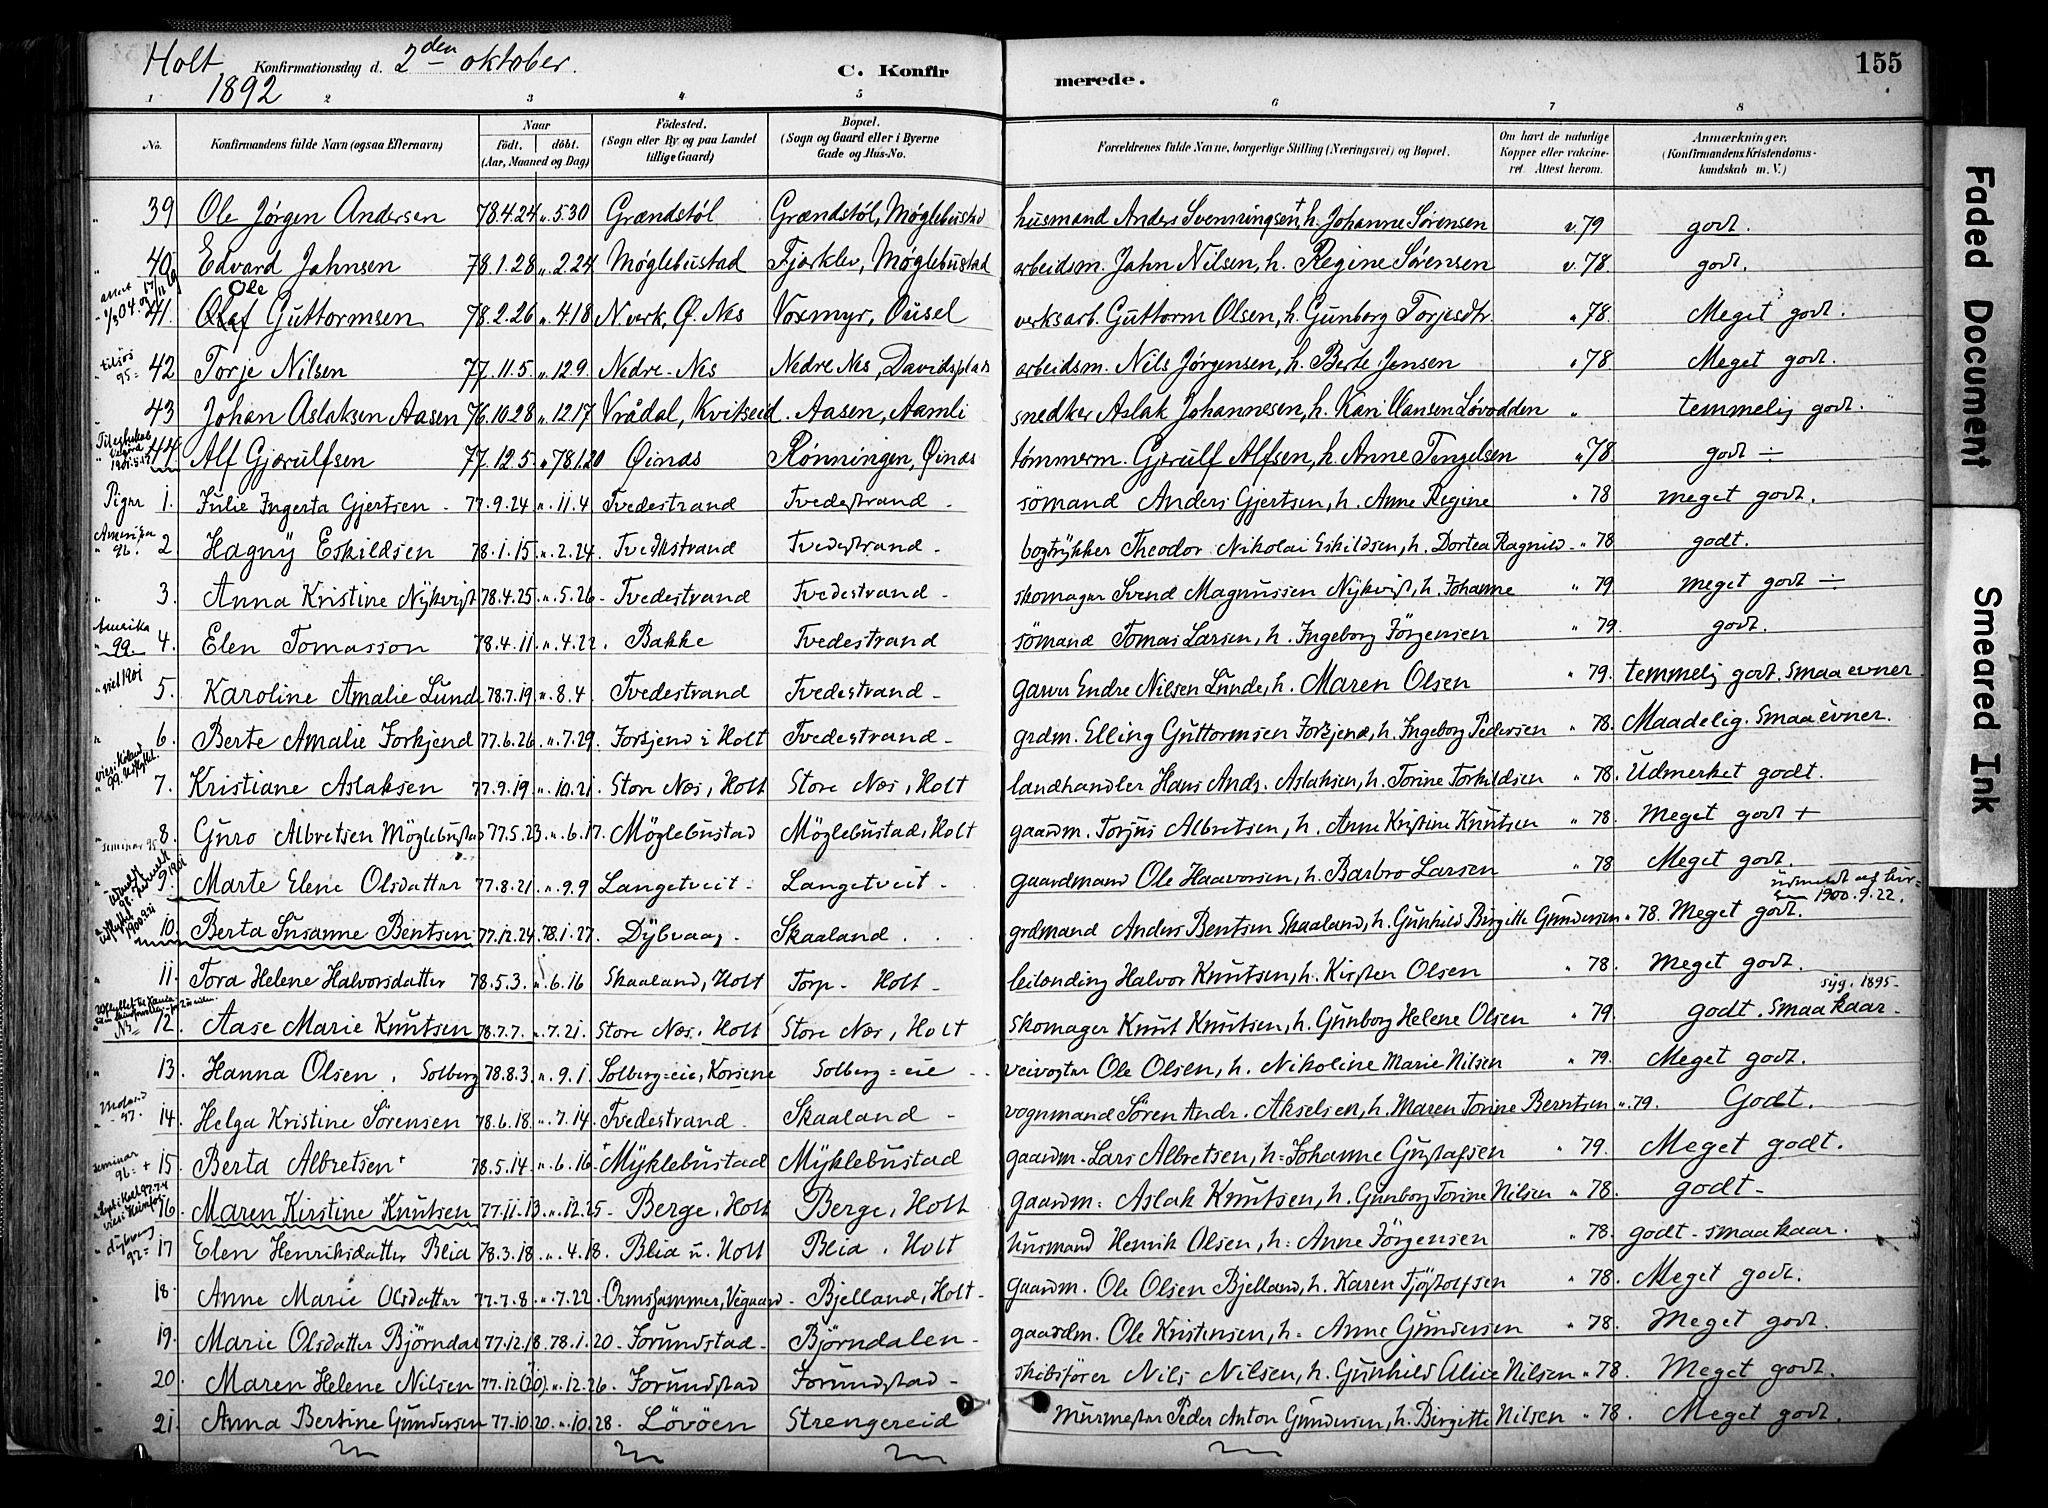 Holt Konfirmationsdag d. 2den oktober. C. Konfir merede. 155
1892
1 2 3 4 5 6 7 8
No. Konfirmandens fulde Navn (ogsaa Efternavn) Naar født. døbt. (Aar, Maaned og Dag) Fødested. (Sogn eller By og paa Landet tillige Gaard) Bopæl. (Sogn og Gaard eller i Byerne Gade og Hus-No. Forældrenes fulde Navne, borgerlige Stilling (Næringsvei) og Bopæl. Om havt de naturlige Kopper eller vakcineret. Attest herom. Anmærkninger. (Konfirmandens Kristendomskundskab m. V.)
" 39 Ole Jørgen Andersen 78.4.24 ". 5.30 Grændstøl Grændstøl, Møglebustad husmand Anders Svenningsen†, h. Johanne Sørensen v. 79 godt.
" 40 Edvard Jahnsen 78.1.28 ". 2.24 Møglebustad Fjærklev, Møglebustad arbeidsm. Jahn Nilsen, h. Regine Sørensen v. 78. godt.
41. Ole Guttormsen 78.2.26 ". 4.18 N. verk, Ø. Nes Voxmyr, Ousel verksarb. Guttorm Olsen, h. Gunborg Torjesdtr. " 78. Meget godt.
tilsjøs 95= 42 Torje Nilsen 77.11.5 ". 12.9. Nedre-Nes Nedre Nes, Davidsplads arbeidsm. Nils Jørgensen, h. Berte Jensen " 78 Meget godt.
43 Johan Aslaksen Aasen 76.10.28 ". 12.17 Vrådal, Kvitseid. Aasen, Aamli snedker Aslak Johannesen, h. Kari Hansen Løvodden " temmelig godt.
44 Alf Gjærulfsen 77.12.5 " 78.1.20 Øinas Rønningen, Øinas tømmerm. Gjerulf Alfsen, h. Anne Tengelsen " 78. godt ÷
Piger 1. Julie Ingerta Gjertsen 77.9.24 ". 11.4 Tvedestrand Tvedestrand - sömand Anders Gjertsen, h. Anne Regine " 78 meget godt.
Amerika 96. 2 Hagny Eskildsen 78.1.15 ". 2.24. Tvedestrand Tvedestrand - bogtrykker Theodor Nikolai Eskildsen, h. Dortea Ragnild - " 78 godt.
" 3. Anna Kristine Nykvist 78.4.25 ". 5.26 - Tvedestrand Tvedestrand - skomager Svend Magnussen Nykvist, h. Johanne " 79 meget godt ÷
Amerika 99. 4. Elen Tomasson 78.4.11. ". 4.22. Bakke Tvedestrand sömand Tomas Larsen, h. Ingeborg Jörgensen " 79. godt.
" viet 1901 5. Karoline Amalie Lunde 78.7.19 ". 8.4 Tvedestrand Tvedestrand - garver Endre Nilsen Lunde, h. Maren Olsen " 79. temmelig godt. Smaa evner.
" 6. Berte Amalie Forkjend 77.6.26 ". 7.29. Forkjend i Holt Tvedestrand - grdm. Elling Guttormsen Forkjend, h. Ingeborg Pedersen " 78. Maadelig. Smaa evner.
7. Kristiane Aslaksen 77.9.19 ". 10.21. Store Næs, Holt Store Næs, Holt landhandler Hans Andr. Aslaksen, h. Torine Torkildsen " 78. Udmerket godt.
" seminar 95 8. Guro Albretsen Møglebustad 77.5.23. ". 6.17. Møglebustad Møglebustad, Holt gaardm. Torjus Albretsen, h. Anne Kristine Knutsen " 78. Meget godt +
9. Marte Elene Olsdatter 77.8.21 ". 9.9 Langetveit. Langetveit - gaardmand Ole Haavorsen, h. Barbro Larsen " 78 Meget godt.
10. Berta Susanne Bentsen 77.12.24. 78.1.27. Dybvaag. Skaaland. grdmand Anders Bentsen Skaaland, h. Gunhild Birgitte Gundersen " 78. Meget godt. 1900.9.22.
" 11. Tora Helene Halvorsdatter 78.5.3. ". 6.16 Skaaland, Holt Torp - Holt - leilending Halvor Knutsen, h. Kirsten Olsen " 78. Meget godt.
12. Aase Marie Knutsen 78.7.7. ". 7.21. Store Næs, Holt Store Næs, Holt skomager Knut Knutsen, h. Gunborg Helene Olsen " 79. godt. smaa kaar. syg. 1895-
" 13. Hanna Olsen. Solberg 78.8.3. ". 9.1. Solberg=eie, Korsene Solberg=eie - veivogter Ole Olsen, h. Nikoline Marie Nilsen " 79. Meget godt.
97. 14. Helga Kristine Sørensen 78.6.18. ". 7.14. Tvedestrand. Skaaland - vognmand Sören Andr. Akselsen, h. Maren Torine Berntsen " 79. Godt.
seminar 96= + 15. Berta Albretsen + 78.5.14 ". 6.16. Myklebustad Myklebustad gaardm. Lars Albretsen, h= Johanne Gustafsen " 79. Meget godt.
16. Maren Kirstine Knutsen 77.11.13. ". 12.25 - Berge, Holt Berge, Holt gaardm= Aslak Knutsen, h. Gunborg Torine Nilsen " 78. godt -
" dybvaag 92= 17 Elen Henriksdatter Blia 78.3.18 ". 4.18. Blia u. Holt Blia, Holt husmand Henrik Olsen, h= Anne Jörgensen " 78. godt - smaa kaar.
" 18. Anne Marie Olsdatter 77.7.8. ". 7.22. Ormshammer, Vegaard - Bjelland, Holt - gaardm. Ole Olsen Bjelland, h. Karen Tjöstolfsen " 78. Meget godt.
" 19. Marie Olsdatter Björndal 77.12.18. 78.1.20 - Forundstad - Björndalen - gaardm. Ole Kristensen, h= Anne Gundersen " 78. Meget godt.
" 20. Maren Helene Nilsen ". 12.26. Forundstad Forundstad - skibsfører Nils Nilsen, h. Gunhild Alice Nilsen " 78 Meget godt.
" 21. Anna Bertine Gundersen 77.10.20. ". 10.28. Lövöen Strengereid Murmester Peder Anton Gundersen, h. Birgitte Nilsen " 78. Meget godt.
Faded Document
Smeared Ink